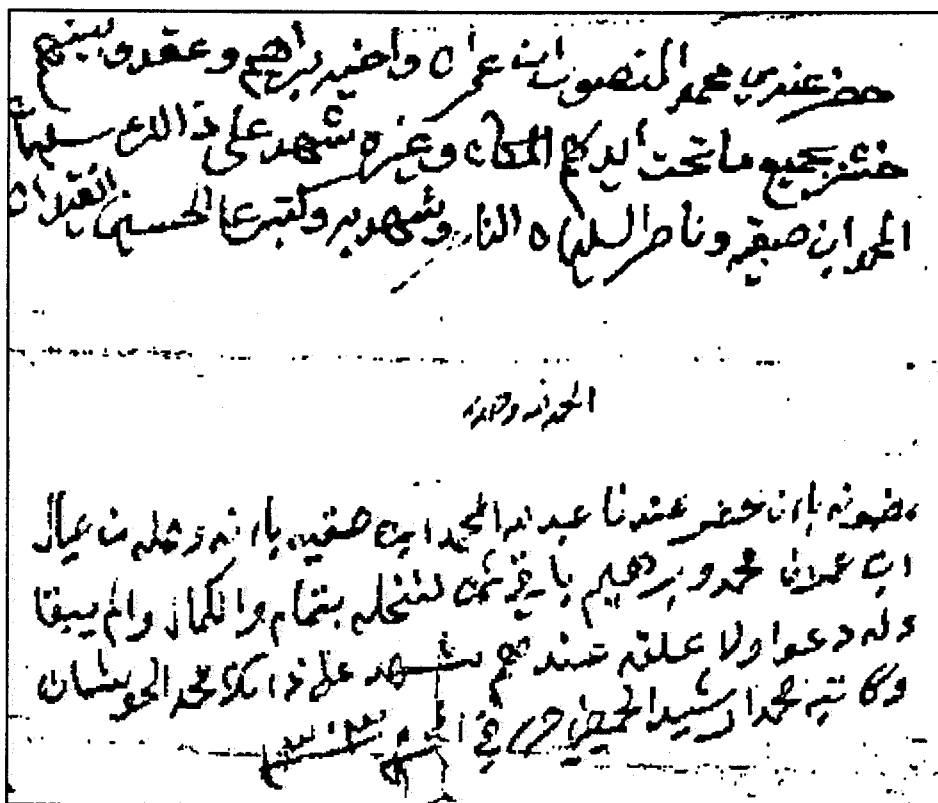 حضر عندي محمد المنصور ابن عمران واخيه براهيم وعقدو بينهم
بجميع ما تحت أيديهم المكان وغيره شهد على ذالك سليمان
المحمد ابن صقيه وناصر السليمان وشهد به وكتبه علي الحسين
الحمد لله وحده
مضمونه بان حضر عندنا عبد لله المحمد ابن صقيه بانه وصله من عيال
ابن عمران محمد وبرهيم باخر ثمن بتمام والكمال والم يبقا
وله دعوا ولا علقه عندهم شهد على ذالك محمد الحوشان
وكاتبه محمد ارشيد الحميضي حرر في